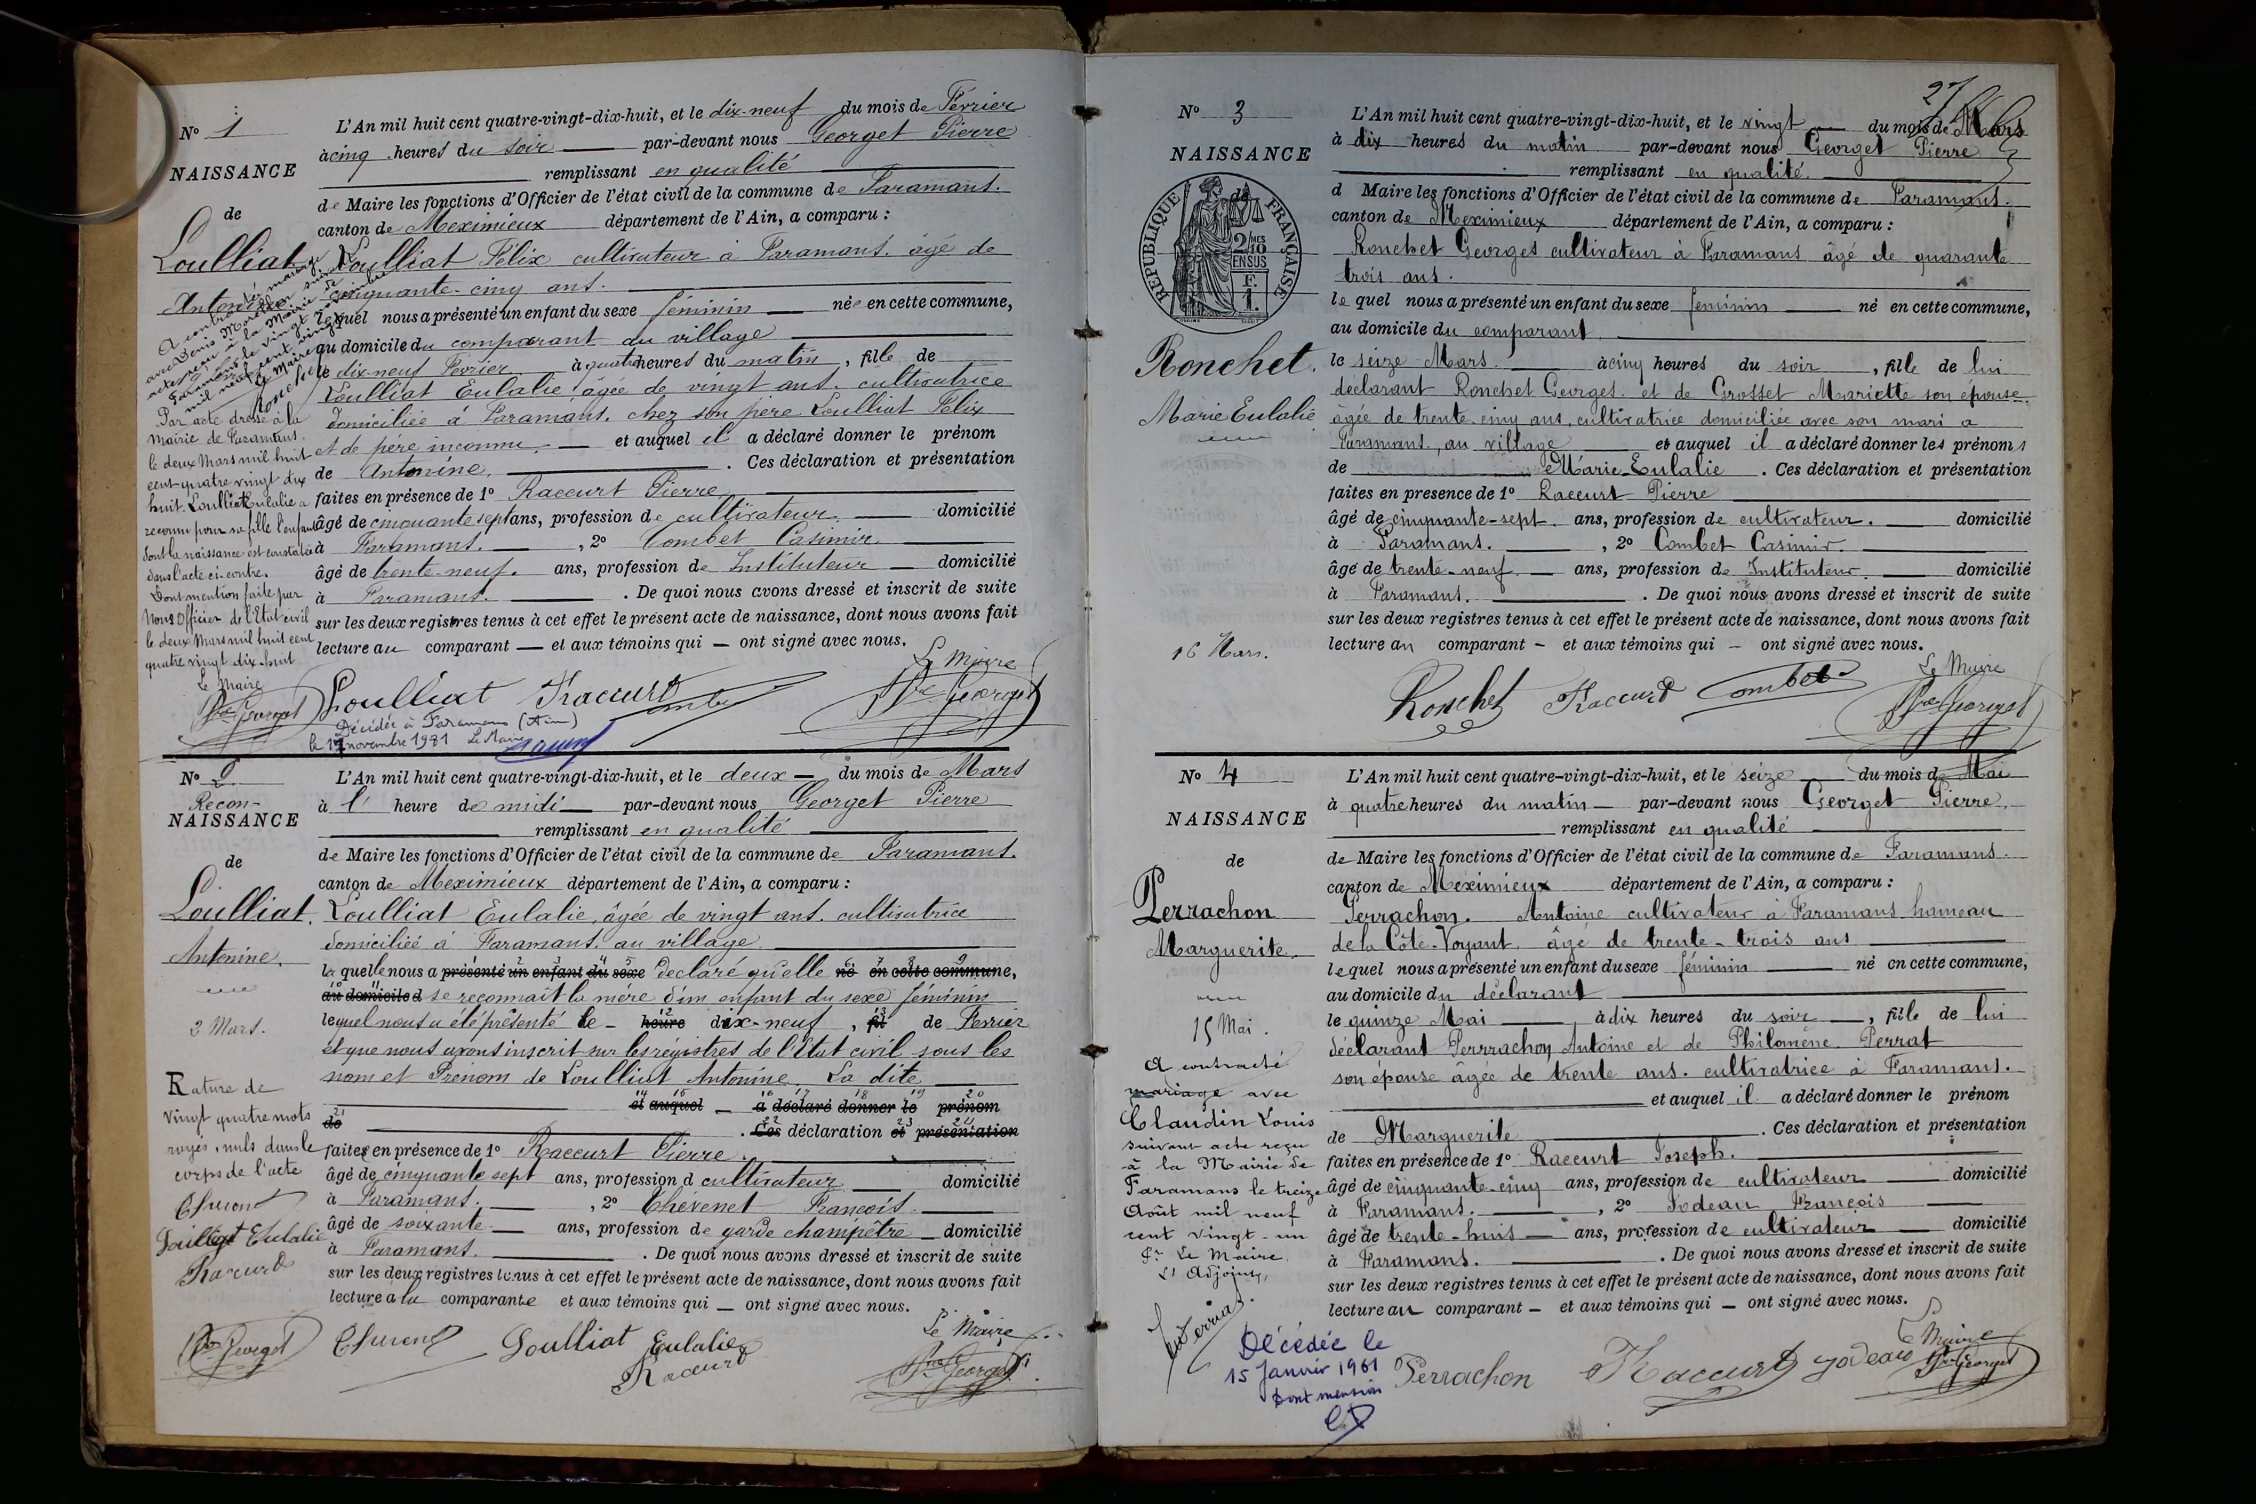 N° 1
NAISSANCE
de
Loulliat
Antonine
L'An mil huit cent quatre-vingt-dix-huit, et le dix-neuf du mois de Février
à cinq heures du soir par-devant nous Georget Pierre
remplissant en qualité
de Maire les fonctions d'Officier de l'état civil de la commune de Faramans.
canton de Meximieux département de l'Ain, a comparu :
Loulliat Félix cultivateur à Faramans. âgé de
cinquante-cinq ans.
lequel nous a présenté un enfant du sexe féminin née en cette commune,
au domicile du comparant au village
le dix-neuf Février à quatre heures du matin, fille de
Loulliat Eulalie, âgée de vingt ans. cultivatrice
domiciliée à Faramans. chez son père Loulliat Félix
et de père inconnu. et auquel il a déclaré donner le prénom
de Antonine. . Ces déclaration et présentation
faites en présence de 1° Raccurt Pierre
âgé de cinquante sept ans, profession de cultivateur. domicilié
à Faramans. , 2° Combet Casimir.
âgé de trente-neuf. ans, profession de Instituteur domicilié
à Faramans. . De quoi nous avons dressé et inscrit de suite
sur les deux registres tenus à cet effet le présent acte de naissance, dont nous avons fait
lecture au comparant — et aux témoins qui — ont signé avec nous.
Le Maire
Loulliat Raccurt Combet Pre Georget
A contracté mariage
avec Denis
acte reçu à la Mairie de
Faramans le vingt
mil neuf cent vingt
Le Maire
Ronchet
Par acte dressé à la
Mairie de Faramans.
le deux Mars mil huit
cent quatre vingt dix
huit. Loulliat Eulalie a
reconnu pour sa fille l'enfant
dont la naissance est constatée
dans l'acte ci-contre.
Dont mention faite par
Nous Officier de l'Etat civil
le deux Mars mil huit cent
quatre vingt dix-huit
Le Maire
Pre Georget
Décédée à Faramans (Ain)
le 17 novembre 1981 Le Maire
N° 2
Recon-
NAISSANCE
de
Loulliat.
Antonine.
2 Mars.
L'An mil huit cent quatre-vingt-dix-huit, et le deux — du mois de Mars
à l' heure de midi par-devant nous Georget Pierre
remplissant en qualité
de Maire les fonctions d'Officier de l'état civil de la commune de Faramans.
canton de Meximieux département de l'Ain, a comparu :
Loulliat Eulalie, âgée de vingt ans. cultivatrice
domiciliée à Faramans. au village
la quelle nous a présenté un enfant du sexe déclaré qu'elle né en cette commune,
au domicile d se reconnaît la mère d'un enfant du sexe féminin
lequel nous a été présenté le — heure dix-neuf, fil de Février
et que nous avons inscrit sur les régistres de l'Etat civil sous les
nom et Prénom de Loulliat Antonine. La dite
et auquel — a déclaré donner le prénom
de . Ces déclaration et présentation
faites en présence de 1° Raccurt Pierre.
âgé de cinquante sept ans, profession d cultivateur domicilié
à Faramans. , 2° Chévenet François.
âgé de soixante ans, profession de garde champêtre domicilié
à Faramans. . De quoi nous avons dressé et inscrit de suite
sur les deux registres tenus à cet effet le présent acte de naissance, dont nous avons fait
lecture a la comparante et aux témoins qui — ont signé avec nous.
Rature de
Vingt quatre mots
rayés, nuls dans le
corps de l'acte
Loulliat Eulalie
Raccurt
Le Maire
Pre Georget Loulliat Eulalie
Raccurt Pre Georget
27
N° 3
NAISSANCE
de
RÉPUBLIQUE FRANÇAISE
2/10MES
EN SUS
F.
1.
Ronchet.
Marie Eulalie
16 Mars.
L'An mil huit cent quatre-vingt-dix-huit, et le vingt — du mois de Mars
à dix heures du matin par-devant nous Georget Pierre
remplissant en qualité.
d Maire les fonctions d'Officier de l'état civil de la commune de Faramans.
canton de Meximieux département de l'Ain, a comparu :
Ronchet Georges cultivateur à Faramans âgé de quarante
trois ans.
le quel nous a présenté un enfant du sexe féminin né en cette commune,
au domicile du comparant
le seize Mars à cinq heures du soir, fille de lui
déclarant Ronchet Georges. et de Grosset Mariette son épouse.
âgée de trente cinq ans, cultivatrice domiciliée avec son mari a
Faramans, au village et auquel il a déclaré donner les prénoms
de Marie Eulalie . Ces déclaration et présentation
faites en présence de 1° Raccurt Pierre
âgé de cinquante-sept. ans, profession de cultivateur. domicilié
à Faramans. , 2° Combet Casimir.
âgé de trente-neuf ans, profession de Instituteur. domicilié
à Faramans. . De quoi nous avons dressé et inscrit de suite
sur les deux registres tenus à cet effet le présent acte de naissance, dont nous avons fait
lecture au comparant — et aux témoins qui — ont signé avec nous.
Le Maire
Ronchet Raccurt Combet Pre Georget
N° 4
NAISSANCE
de
Perrachon
Marguerite.
15 Mai.
L'An mil huit cent quatre-vingt-dix-huit, et le seize du mois de Mai
à quatre heures du matin — par-devant nous Georget Pierre.
remplissant en qualité
de Maire les fonctions d'Officier de l'état civil de la commune de Faramans.
canton de Meximieux département de l'Ain, a comparu :
Perrachon. Antoine cultivateur à Faramans hameau
de la Côte-Voyant. âgé de trente-trois ans
lequel nous a présenté un enfant du sexe féminin né en cette commune,
au domicile du déclarant
le quinze Mai à dix heures du soir, fille de lui
déclarant Perrrachon Antoine et de Philomène Perrat
son épouse âgée de trente ans. cultivatrice à Faramans.
et auquel il a déclaré donner le prénom
de Marguerite . Ces déclaration et présentation
faites en présence de 1° Raccurt Joseph.
âgé de cinquante-cinq ans, profession de cultivateur domicilié
à Faramans. , 2° Jodeau François
âgé de trente-huit ans, profession de cultivateur domicilié
à Faramans. . De quoi nous avons dressé et inscrit de suite
sur les deux registres tenus à cet effet le présent acte de naissance, dont nous avons fait
lecture au comparant — et aux témoins qui — ont signé avec nous.
A contracté
mariage avec
Claudin Louis
suivant acte reçu
à la Mairie de
Faramans le treize
Août mil neuf
cent vingt-un
Pr Le Maire
L'Adjoint,
Décédée le
15 Janvier 1961
Dont mention
Le Maire
Perrachon Raccurt Jodeau Pre Georget